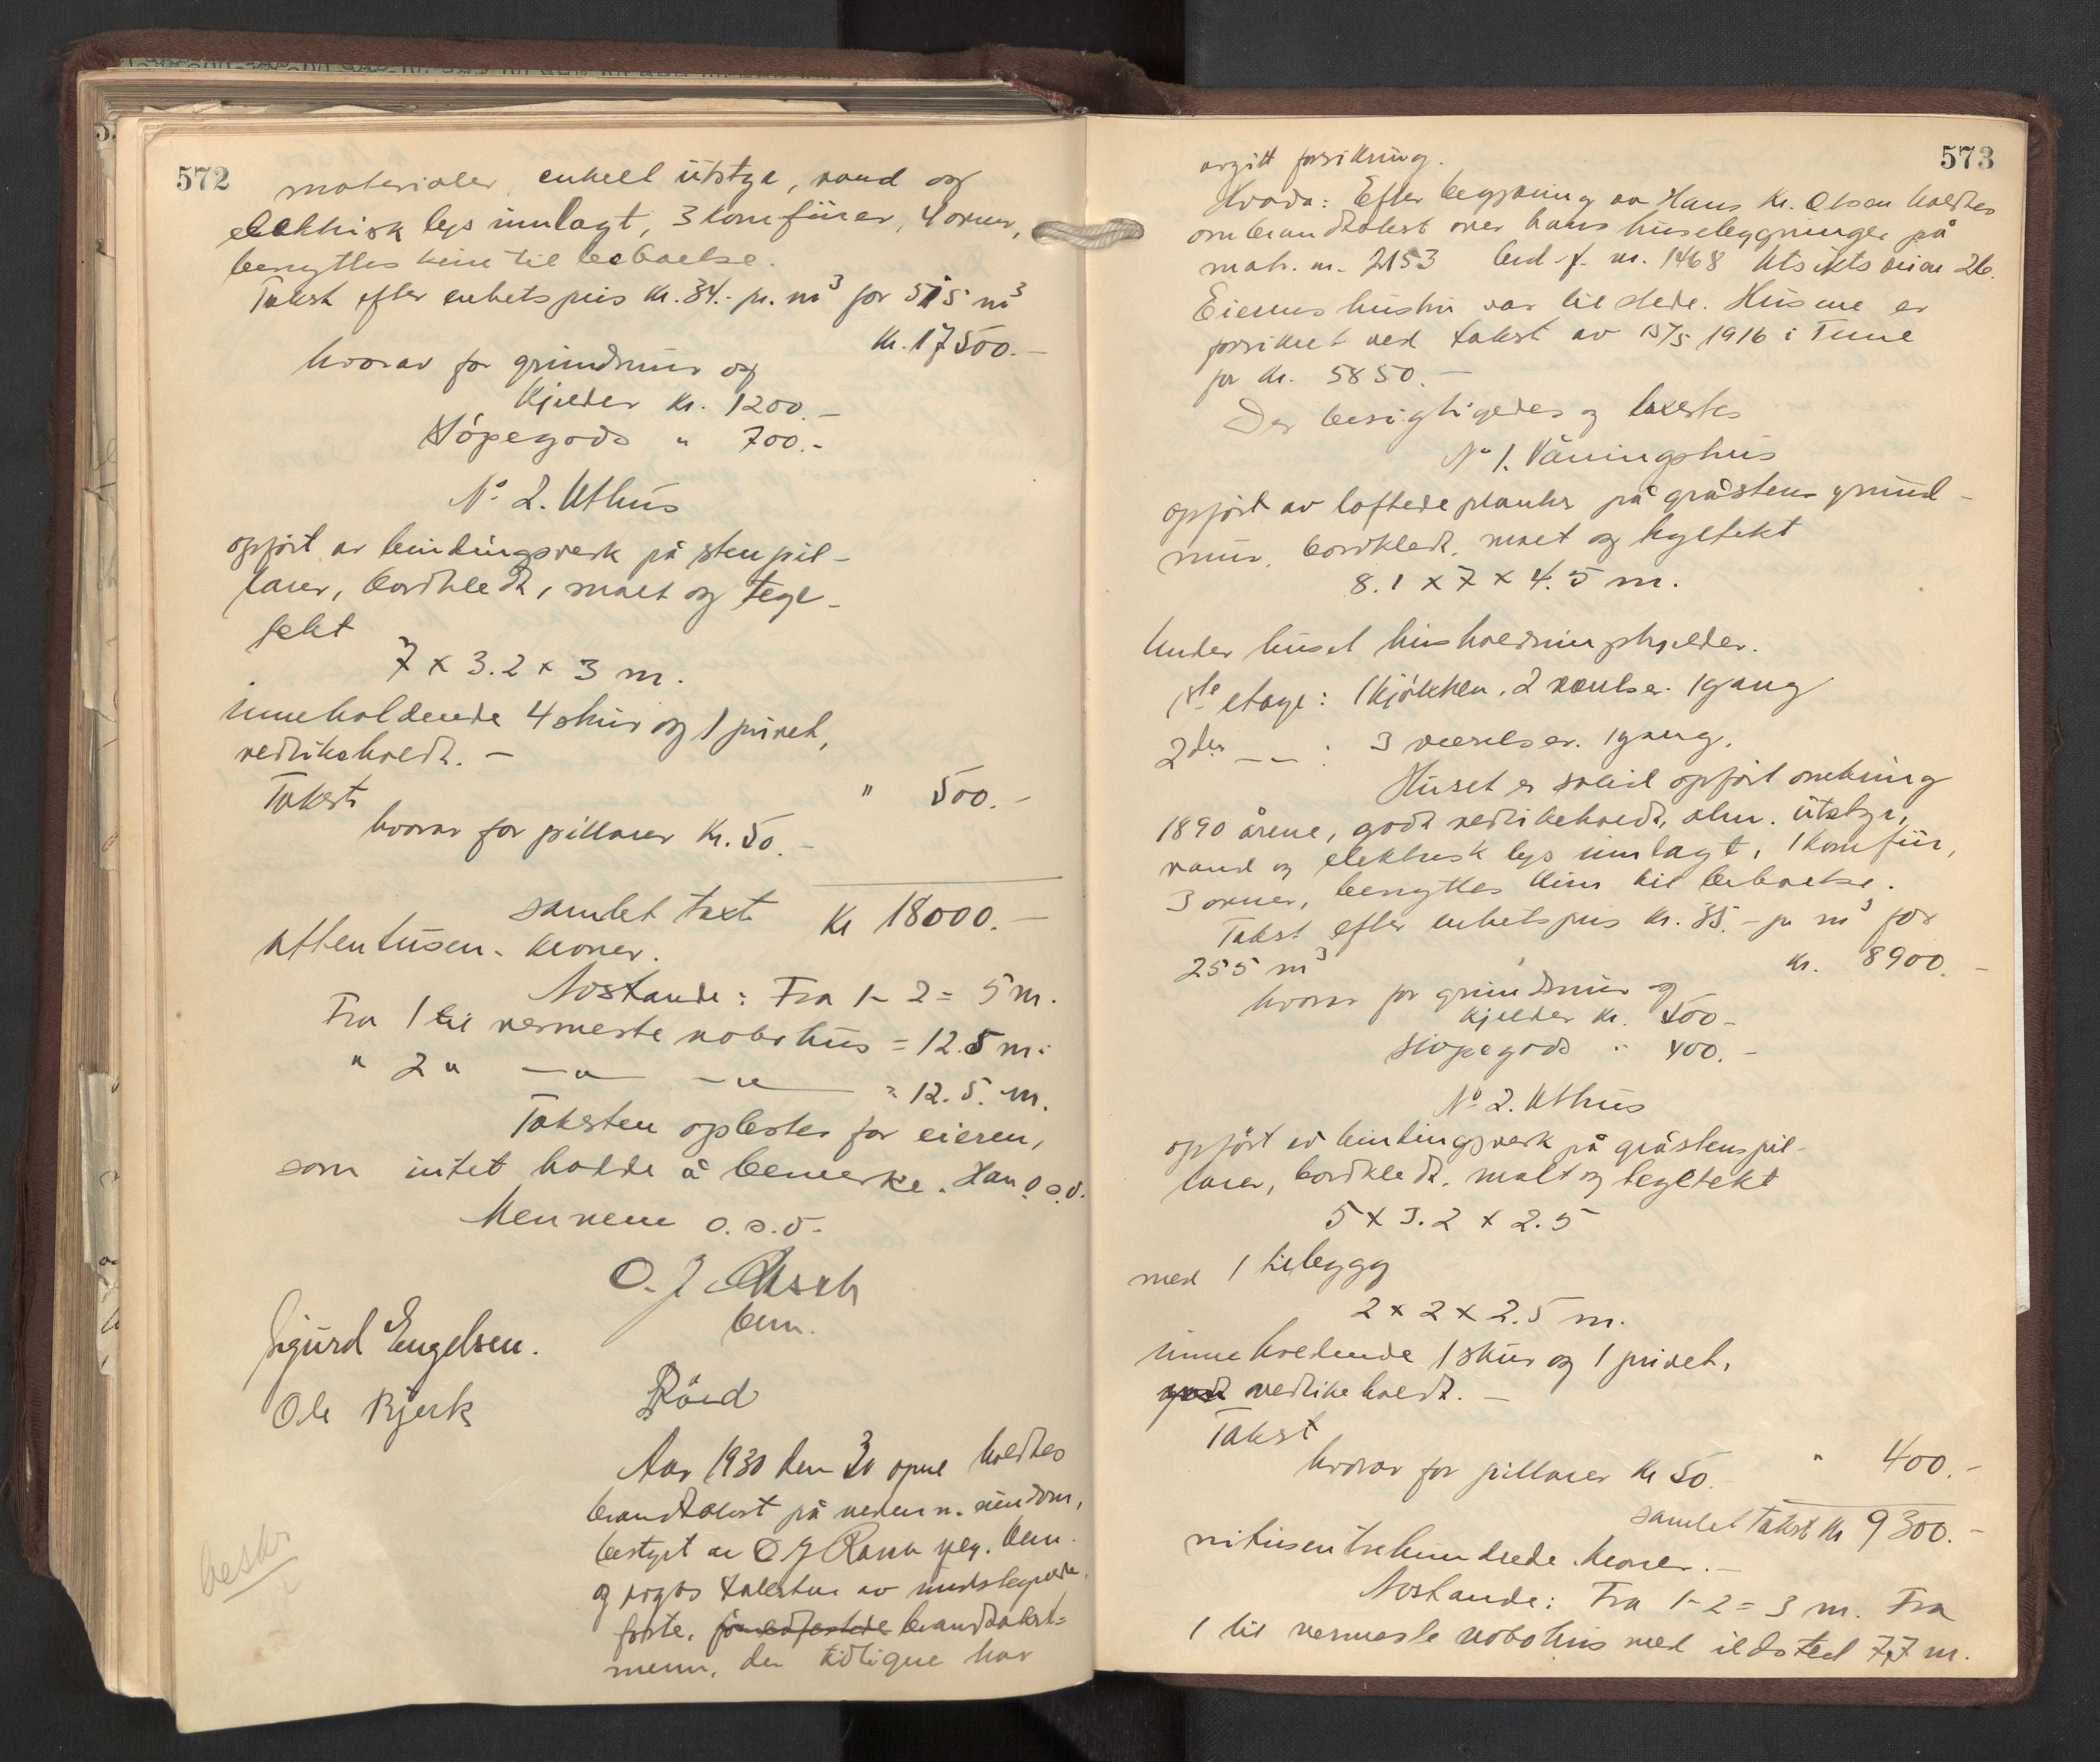 572
materialer, enkelt utstyr, vand og
elektrisk lys innlagt, 3 komfürer, 4 ovner,
benyttes kun til beboelse.
Takst efter enhetspris Kr. 34.- pr. m³ for 515 m³
Kr. 17500.-
hvorav for grundmur og
Kjelder Kr. 1200.-
Stöpegods " 700.-
No 2. Uthus
opfört av bindingsverk på stenpil-
larer, bordkledt, malt og tegl-
tekt
7 x 3.2 x 3 m.
inneholdende 4 skur og 1 privet,
vedlikeholdt. -
Takst " 500.-
hvorav for pillarer Kr. 50.-
samlet takst Kr 18000.-
attentusen- kroner.
Avstande: Fra 1- 2 = 5 m.
Fra 1 til nærmeste nabohus = 12.5 m.
" 2 " -"- -"- = 12.5. m.
Taksten oplestes for eieren,
som intet hadde å bemerke. Han o.s.v.
Mennene o.s.v.
O. J.
bem.
Sigurd Engelsen.
Ole Bjerk
Röed
Aar 1930 den 30 april holdtes
brandtakst på nedenn. eiendom,
bestyrt av O J ppg. bem.
og avgas taksten av undertegnede
faste, brandtakst-
menn, der tidligere har
573
avgitt forsikring.
Hvada: Efter begjæring av Hans Kr. Olsen holdtes
ombrandtakst over hans husebygninger på
matr. nr. 2153 brd. f. nr. 1468 Utsiktsveien 26.
Eierens hustru var til stede. Husene er
forsikret ved takst av 15/5 1916 i Tune
for Kr. 5850.-
Der besigtigedes og taxertes
No 1. Våningshus
opfört av loftede planker på gråstens grund-
mur, bordkledt, malt og tegltekt
8.1 x 7 x 4.5 m.
Under huset husholdningskjelder.
1ste etage: 1 kjökken, 2 værelser. 1 gang
2den -"- : 3 værelser. 1 gang.
Huset er solid opfört omkring
1890 årene, godt vedlikeholdt, alm. utstyr,
vand og elektrisk lys innlagt, 1 komfür,
3 ovner, benyttes kun til beboelse.
Takst efter enhetspris Kr. 35.- pr m³ for
255 m³ Kr. 8900.-
hvorav for grundmur og
Kjelder Kr. 500-
Stöpegods " 400.-
No 2. Uthus
opfört av bindingsverk på gråstenspil-
larer, bordkledt, malt og tegltekt
5 x 3.2 x 2.5
med 1 tilbygg
2 x 2 x 2.5 m.
inneholdende 1 skur og 1 privet,
godt vedlikeholdt. -
Takst
hvorav for pillarer Kr 50. " 400.-
samlet takst Kr 9300.-
nitusentrehundrede kroner.-
Avstande: Fra 1- 2 = 3 m. Fra
1 til nærmeste nabohus med ildsted 7,7 m.